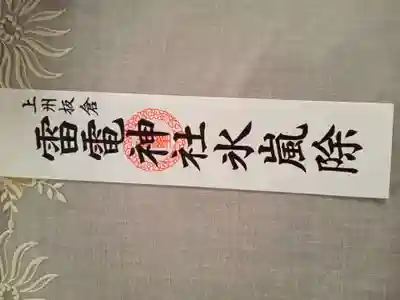 上州板倉
雷電神社氷嵐除